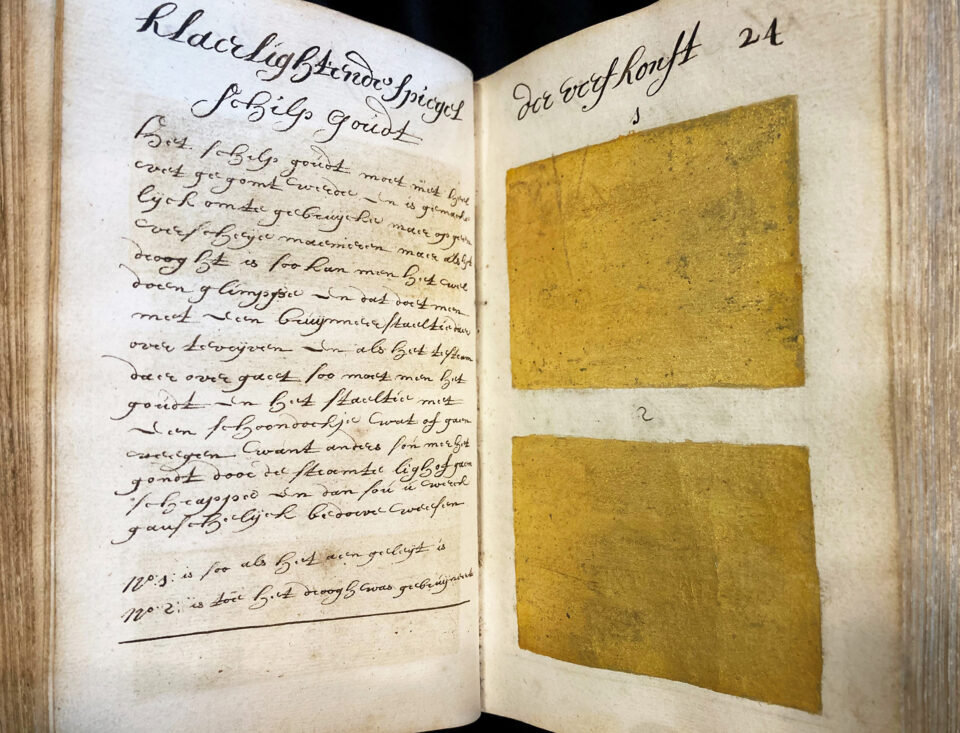 klaerlightende Spiegel
Schilp goudt
Het schilp goudt moet met heel
wet ge gomt werde en is gemacke
lijck om te gebruijcke maer op geen
verscheijde manieren maer als het
droogh is soo kan men het wel
doen glimppe en dat doet men
met een bruijnneer staeltie daer
over te vrijven en als het te stram
daer over gaet soo moet men het
goudt en het staeltie met
een schoon dockje wat of gaen
veegen want anders sou men het
goudt door de stramte ligh of gaen
schrappe en dan sou u werck
ganschelijck bedorve weesen
No: 1: is soo als het aen geleijt is
No: 2: is toe het droogh was gebruijneert
der verf konst 24
1
2